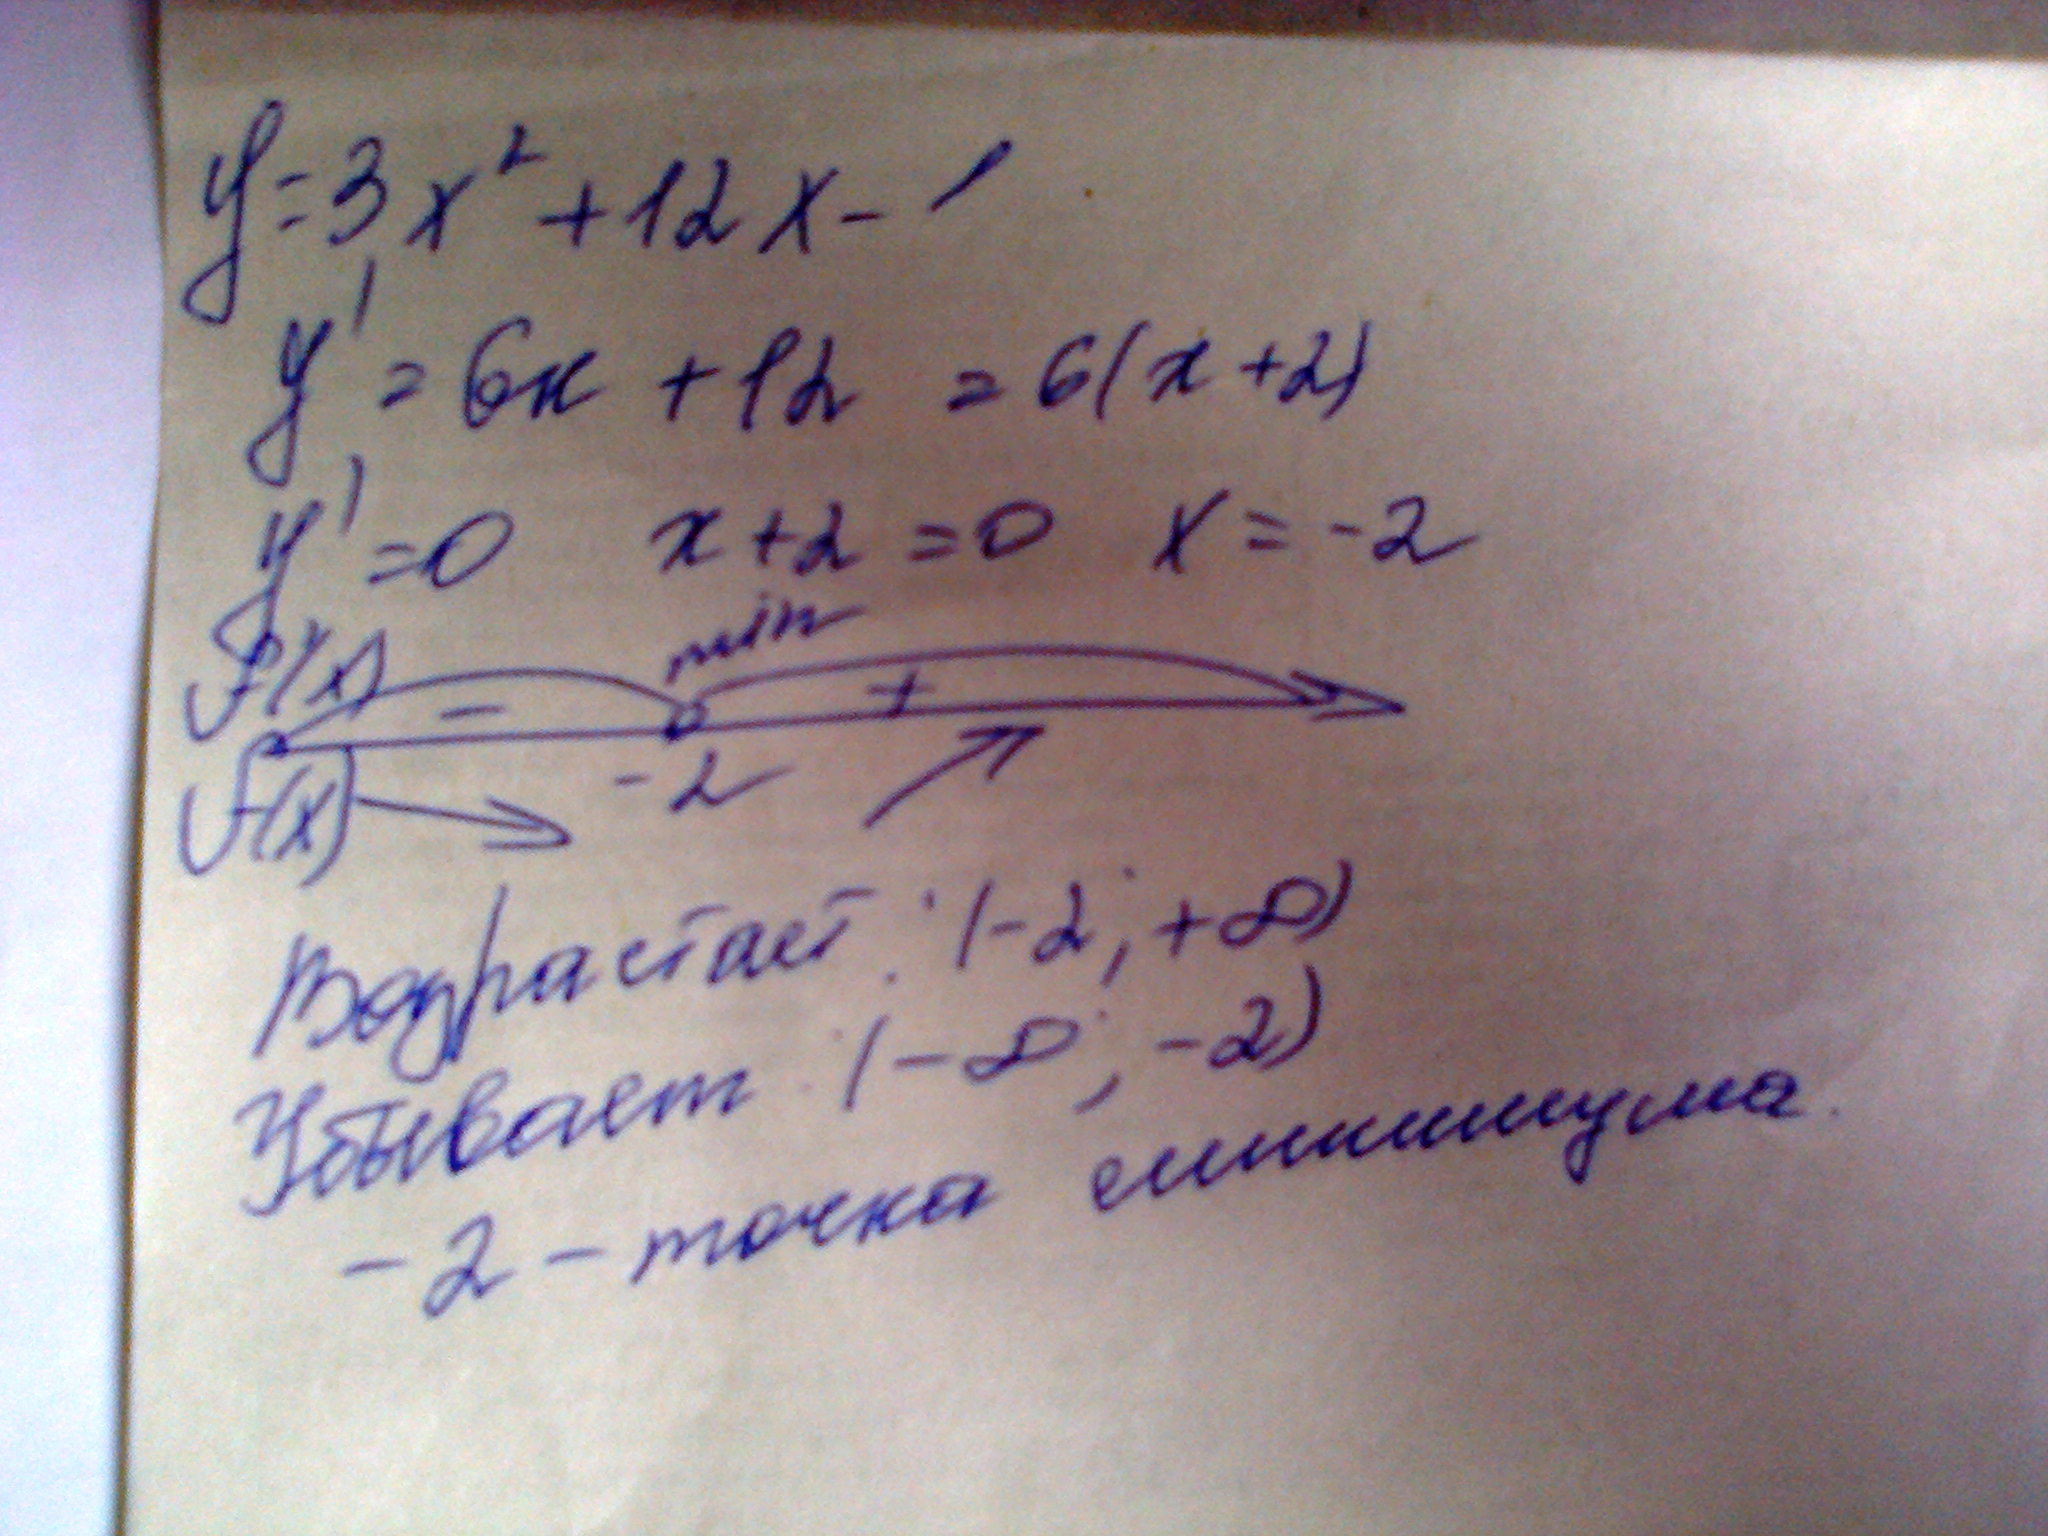 y = 3x² + 12x - 1
y' = 6x + 12 = 6(x + 2)
y' = 0 x + 2 = 0 x = -2
min
f'(x) - +
f(x) -2
Возрастает: (-2; +∞)
Убывает: (-∞; -2)
-2 - точка минимума.